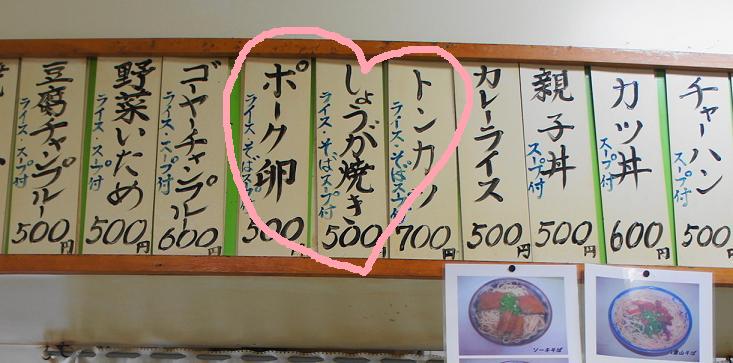 チャーハン
スープ付
500円
カツ丼
スープ付
600円
親子丼
スープ付
500円
カレーライス
500円
トンカツ
ライス・そばスープ付
700円
しょうが焼き
ライス・そばスープ付
500円
ポーク卵
ライス・そばスープ付
500円
ゴーヤーチャンプルー
ライス・スープ付
600円
野菜いため
ライス・スープ付
500円
豆腐チャンプルー
ライス・スープ付
500円
ソーキそば